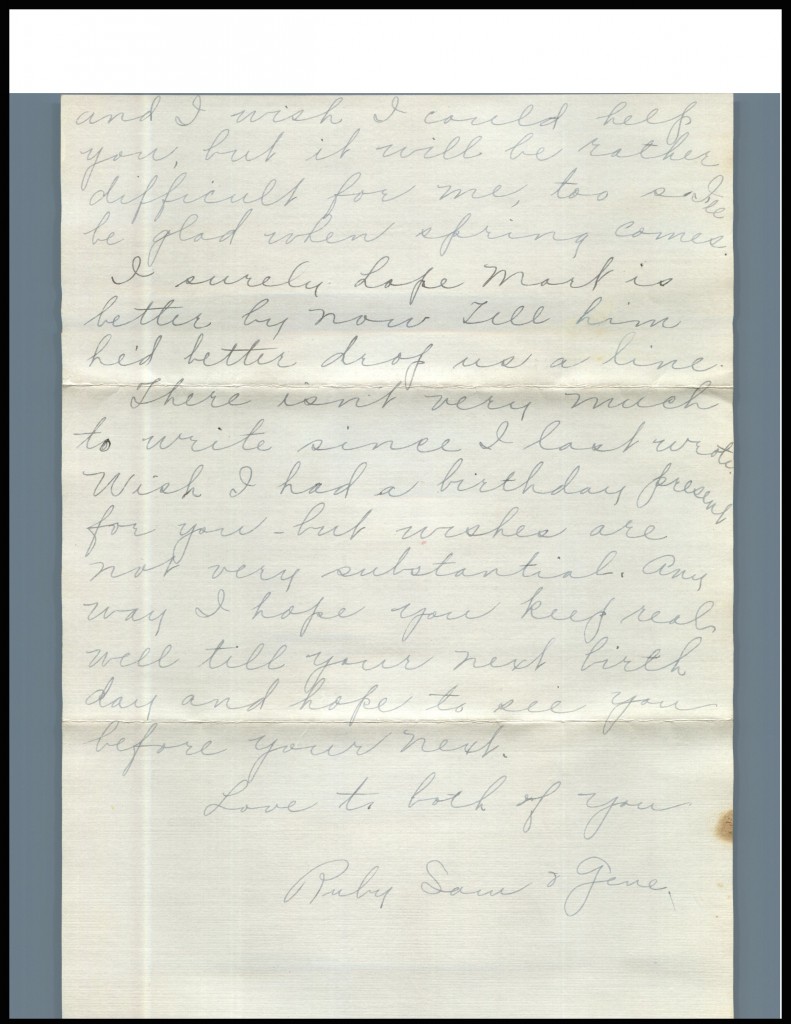 and I wish I could help
you, but it will be rather
difficult for me, too so I'll
be glad when spring comes.
I surely hope Mart is
better by now Tell him
he'd better drop us a line.
There isn't very much
to write since I last wrote.
Wish I had a birthday present
for you - but wishes are
not very substantial. Any
way I hope you keep real
well till your next birth
day and hope to see you
before your next.
Love to both of you
Ruby Sam & Gene.